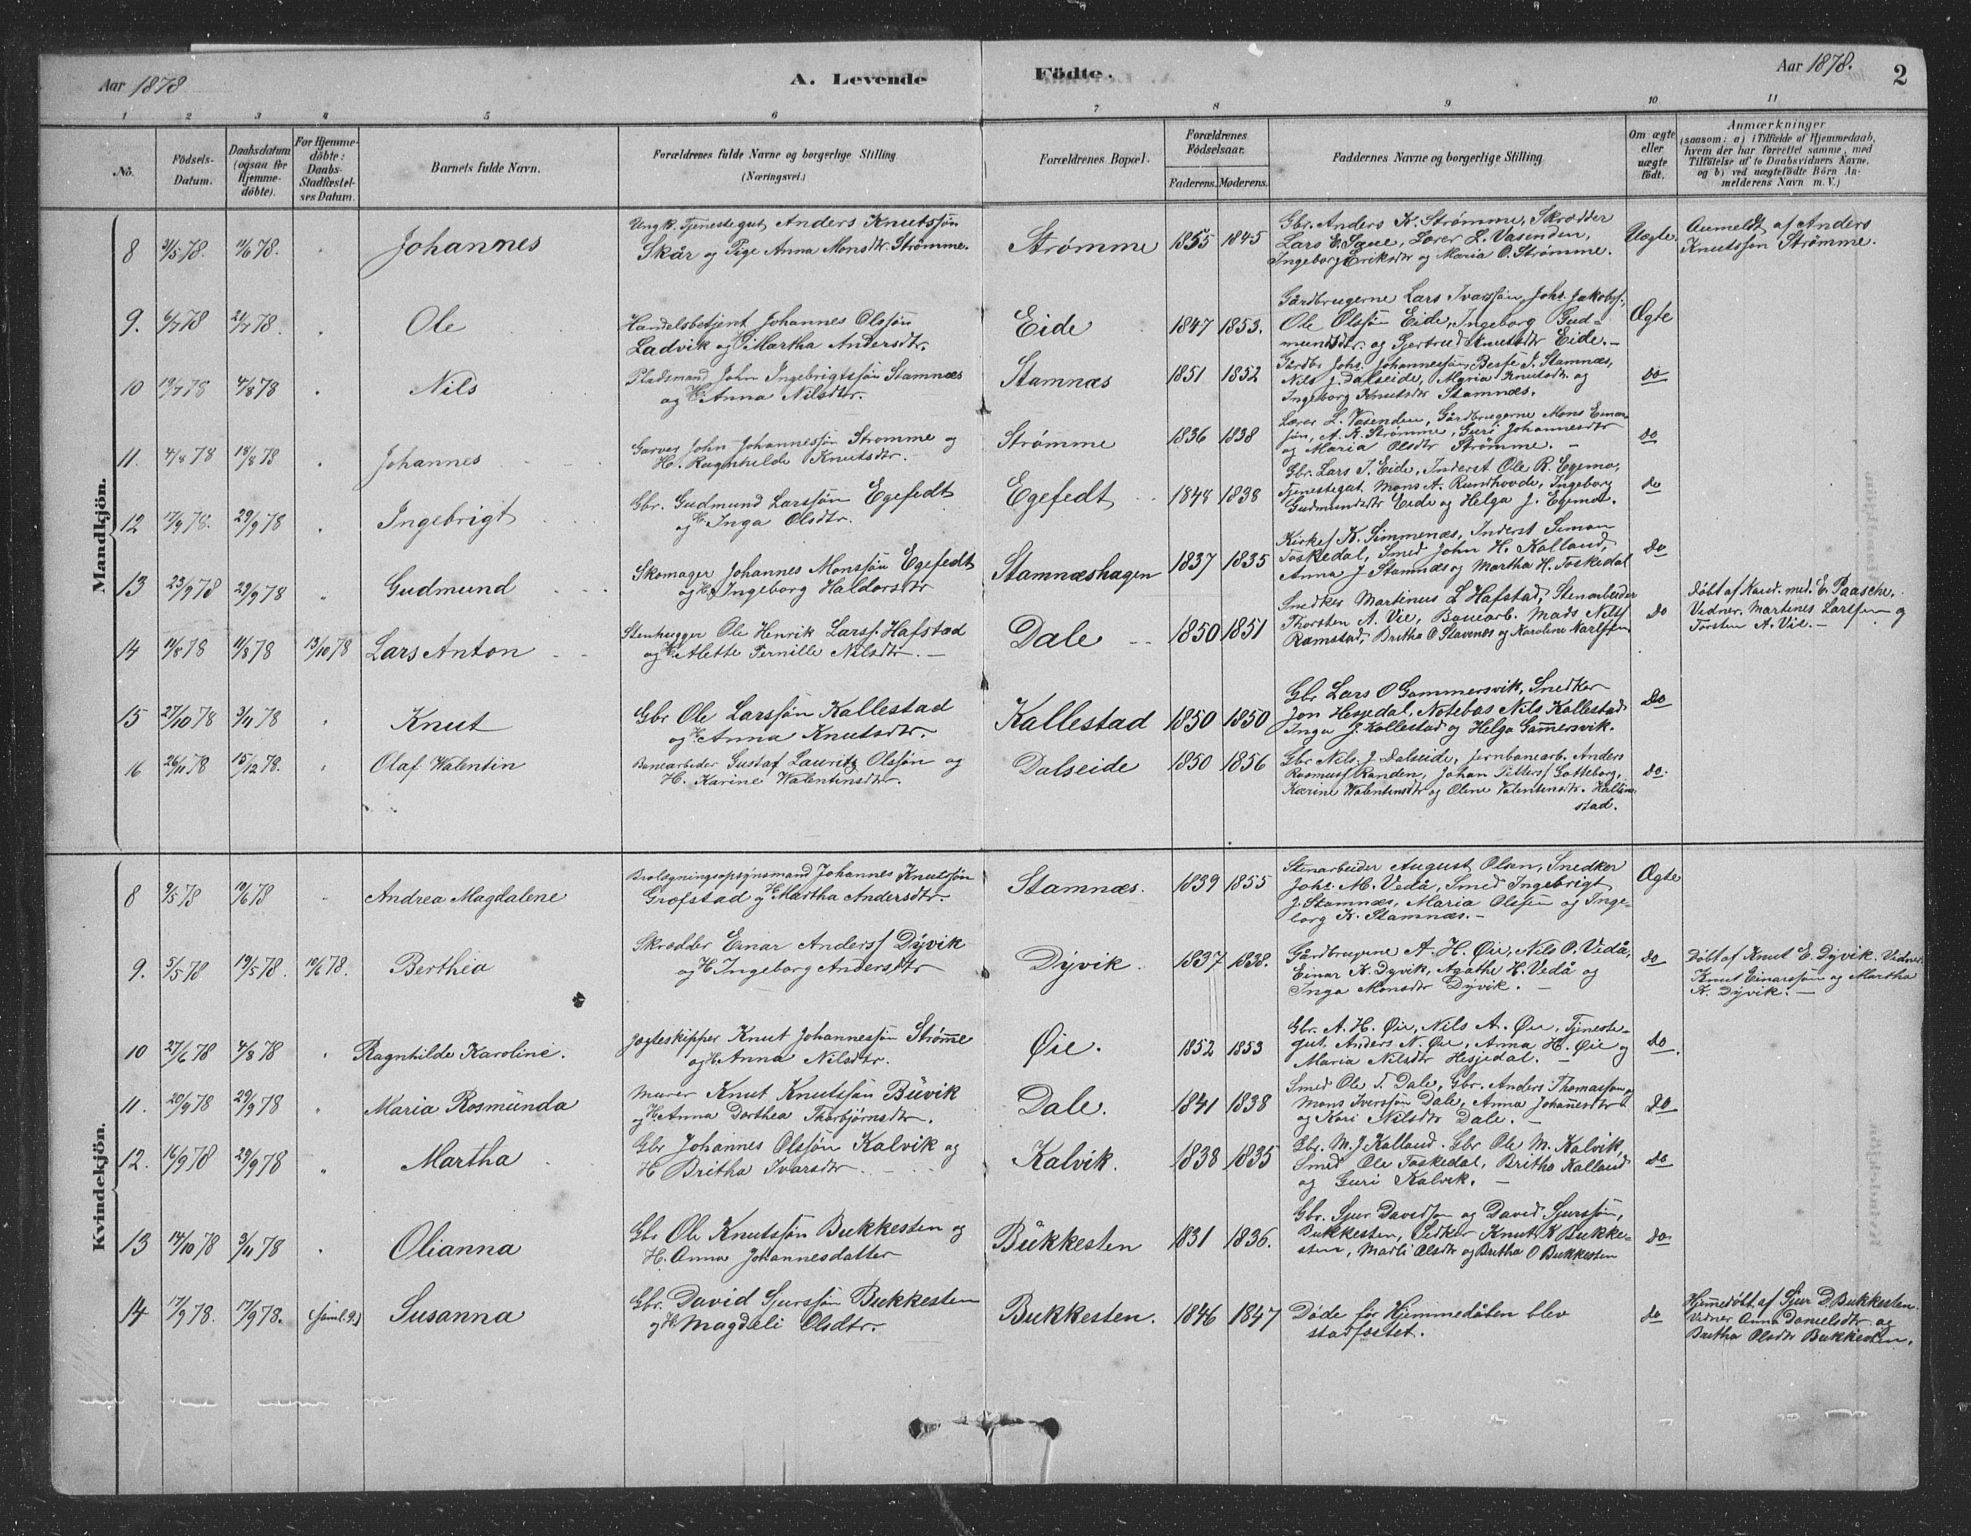 Aar 1878
A. Levende Födte.
Aar 1878.
2
1 2 3 4 5 6 7 8 9 10 11
No.
Födsels-
Datum.
Daabsdatum
(ogsaa for
Hjemme-
döbte).
For Hjemme-
döbte:
Daabs-
Stadfæstel-
ses Datum.
Barnets fulde Navn.
Forældrenes fulde Navne og borgerlige Stilling
(Næringsvei.)
Forældrenes Bopæl.
Forældrenes
Födselsaar.
Faderens. Moderens.
Faddernes Navne og borgerlige Stilling
Om ægte
eller
uægte
födt.
Anmærkninger
(saasom: a) i Tilfælde af Hjemmedaab,
hvem der har forrettet samme, med
Tilföielse af to Daabsvidners Navne.
og b) ved uægtefödte Börn An-
melderens Navn m. V.)
Mandkjön.
8 /5 78. /6 78. Johannes
Ungk. Tjenestegut Anders Knutssön
Skår og Pige Anna Monsdtr. Strömme.
Strømme 1855 1845
Gbr. Anders K. Strømme, Skrædder
Lars E. Saue, Lærer L. Vasenden,
Ingeborg Eriksdtr og Maria O. Strømme.
Uægte.
Anmeldt af Anders
Knutssön Strømme.
9. 6/7 78 21/7 78. Ole
Handelsbetjent Johannes Olssön
Ladvik og H. Martha Andersdtr.
Eide 1847 1853.
Gårdbrugerne Lars Ivarssön, Johs. Jakobss.,
Ole Olssön Eide, Ingeborg Gud-
mundsdtr. og Gjertrud Knutsdtr Eide.
Ægte
10 19/7 78 4/8 78 Nils
Pladsmand John Ingebrigtssön Stamnæs
og H. Anna Nilsdtr.
Stamnæs 1851 1852
Gårdbr Johs. Johannessön, J. Stamnæs,
Nils J. Dalseide, Maria Knutsdtr og
Ingeborg Knutsdtr Stamnæs.
do
11. 4/8 78 18/8 78 Johannes
Garver John Johannessön Strømme og
H. Ragnhilde Knutsdtr.
Strømme 1836 1838
Lærer L. Vasenden, Gårdbrugerne Mons Einar-
sön, A. K. Strømme, Guri Johannesdtr
og Maria Olsdtr Strømme.
do
12 17/9 78. 29/9 78 Ingebrigt
Gbr. Gudmund Larssön Egefedt
og H. Inga Olsdtr.
Egefedt 1848 1838
Gbr. Lars I. Eide, Inderst Ole R. Egemo,
Tjenestegut Mons A. Rundhovde, Ingeborg
Gudmundsdtr Eide og Helga J. Egemo.
do
13 23/9 78 29/9 78 Gudmund
Skomager Johannes Monssön Egefedt
og H. Ingeborg Haldorsdtr
Stamnæshagen 1837 1835
Kirkes. K. Simmenæs, Inderst Simon
Toskedal, Smed John H. Kalland,
Anna J Stamnæs og Martha H. Toskedal
do
14 /8 78 /8 78 13/10 78 Lars Anton
Stenhugger Ole Henrik Larss. Hafstad
og H. Alette Pernille Nilsdtr.
Dale 1850 1851
Snedker Martinus L Hafstad, Stenarbeider
Thorsten A. Vie, Banearb. Mads Nils
Ramstad, Britha O Stavenæs og Karoline
do
Döbt af Kand. med. E. Paasche.
Vidner. Martines Larssen og
Torsten A. Vie.
15 27/10 78 3/11 78 Knut
Gbr Ole Larssön Kallestad
og H. Anna Knutsdtr.
Kallestad 1850 1850
Gbr Lars O Gammersvik, Snedker
Jon Hesjedal, Notebas Nils Kallestad
Inga J. Kallestad og Helga Gammersvik.
do
16 26/11 78 15/12 78. Olaf Valentin
Banearbeider Gustaf Lauritz Olssön og
H. Karine Valentinsdtr.
Dalseide 1850 1856
Gbr Nils J Dalseide, jernbanearb. Anders
Rasmuss Randen, Johan Petters Gotteborg,
Karine Valentinsdtr og Oline Valentinsdtr. Kalle-
stad.
do.
Kvindekjön.
8 /5 78 10/6 78 Andrea Magdalene
Johannes Knutssön
Grøfstad og H. Martha Andersdtr.
Stamnæs. 1839 1855
Stenarbeider August Olsen, Snedker
Johs. M. Vedå, Smed Ingebrigt
J. Stamnæs, Maria Olssen og Inge-
borg K. Stamnæs.
Ægte
9. 5/5 78 19/5 78. 10/6 78. Berthea
Skrædder Einar Anderss Dyvik
og H. Ingeborg Andersdtr
Dyvik. 1837 1838.
Gårdbrugerne A. H. Øie, Nils O. Vedå,
Einar K. Dyvik, Agathe H. Vedå og
Inga Monsdtr Dyvik.
do
Döbt af Knut E. Dyvik. Vidner.
Knut Einarssön og Martha
K. Dyvik.
10 27/6 78 4/8 78 Ragnhilde Karoline.
Jagteskipper Knut Johannessön Strømme
og H. Anna Nilsdtr.
Øie. 1852 1853
Gbr. A. H. Øie, Nils A. Øie, Tjeneste-
gut. Anders N. Øie, Anna H. Øie og
Maria Nilsdtr Hesjedal.
do.
11. 20/9 78 29/9 78 Maria Rosmunda
Murer Knut Knutssön Buvik
og H. Anna Dorthea Thorbjørnsdtr.
Dale. 1841 1838
Smed Ole T. Dale, Gbr. Anders Thomassön og
Mons Iverssön Dale, Anna Johannesdtr
og Kari Nilsdtr Dale.
do
12. 16/9 78 29/9 78 Martha
Gbr Johannes Olssön Kalvik og
H Britha Ivarsdtr
Kalvik. 1838 1835
Gbr. M. J. Kalland. Gbr Ole M. Kalvik,
Smed Ole Toskedal, Britha Kalland
og Guri Kalvik.
do
13 14/10 78 3/11 78 Olianna
Gbr Ole Knutssön Bukkesten og
H. Anna Johannesdatter
Bukkesten 1831 1836.
Gbr. Sjur Davidson og David Sjurssön,
Bukkesten, Snedker Knut K Bukke-
sten, Marli Olsdtr og Britha O Bukkesten
do
14 17/9 78. 17/9 78. Susanna
Gbr. David Sjurssön Bukkesten
og H. Magdeli Olsdtr.
Bukkesten. 1846 1847
Døde før Hjemmedåben blev
stadfæstet.
do
Hjemedöbt af Sjur D. Bukkesten.
Vidner Anna Danielsdtr og
Britha Olsdtr Bukkesten.